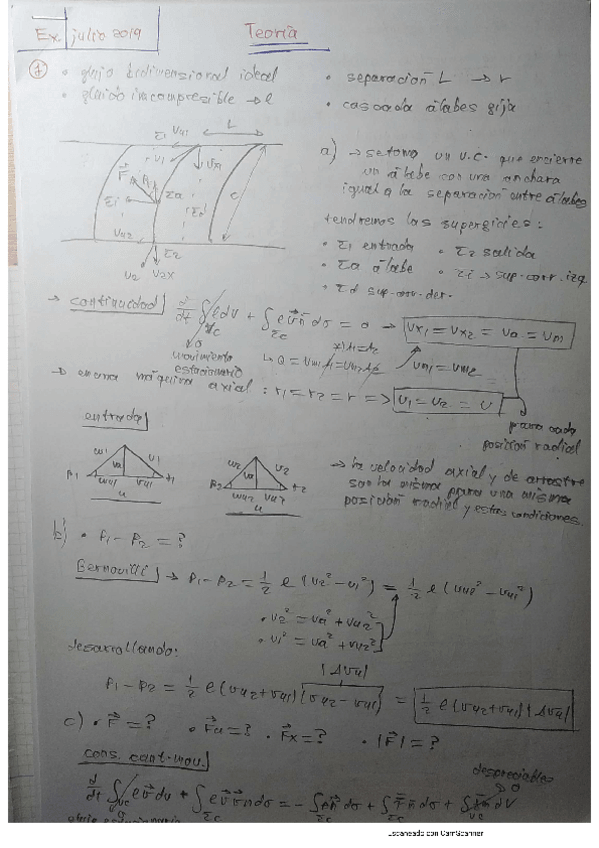 Ex julio 2019
Teoría
1
• flujo bidimensional ideal
• fluido incompresible → ρ
• separación L → r
• cascada álabes fija
a) → se toma un V.C. que encierre
un álabe con una anchura
igual a la separación entre álabes
tendremos las superficies:
• Σ1 entrada • Σ2 salida
• Σa álabe • Σi → sup. corr. izq
• Σd sup. corr. der.
→ continuidad | d/dt ∫Vc ρdv + ∫Σc ρv̄n̄dσ = 0 → Vx1 = Vx2 = Va = Vm
movimiento
estacionario
→ en una máquina axial: r1 = r2 = r => U1 = U2 = U
para cada
posición radial
entrada |
→ la velocidad axial y de arrastre
son las misma para una misma
posición radial y estas condiciones.
b) • P1 - P2 = ?
Bernoulli | → P1 - P2 = 1/2 ρ (V2² - V1²) = 1/2 ρ (Vu2² - Vu1²)
• V2² = Va² + Vu2²
• V1² = Va² + Vu2²
desarrollando:
|ΔVu|
P1 - P2 = 1/2 ρ (Vu2 + Vu1) (Vu2 - Vu1) = 1/2 ρ (Vu2 + Vu1) |ΔVu|
c) • F⃗ = ? • F⃗u = ? • F⃗x = ? • |F⃗| = ?
cons. cant. mov. |
despreciables
d/dt ∫Vc ρv̄dv + ∫Σc ρv̄v̄n̄dσ = - ∫Σc pn̄dσ + ∫Σc τ̄n̄dσ +
Escaneado con CamScanner